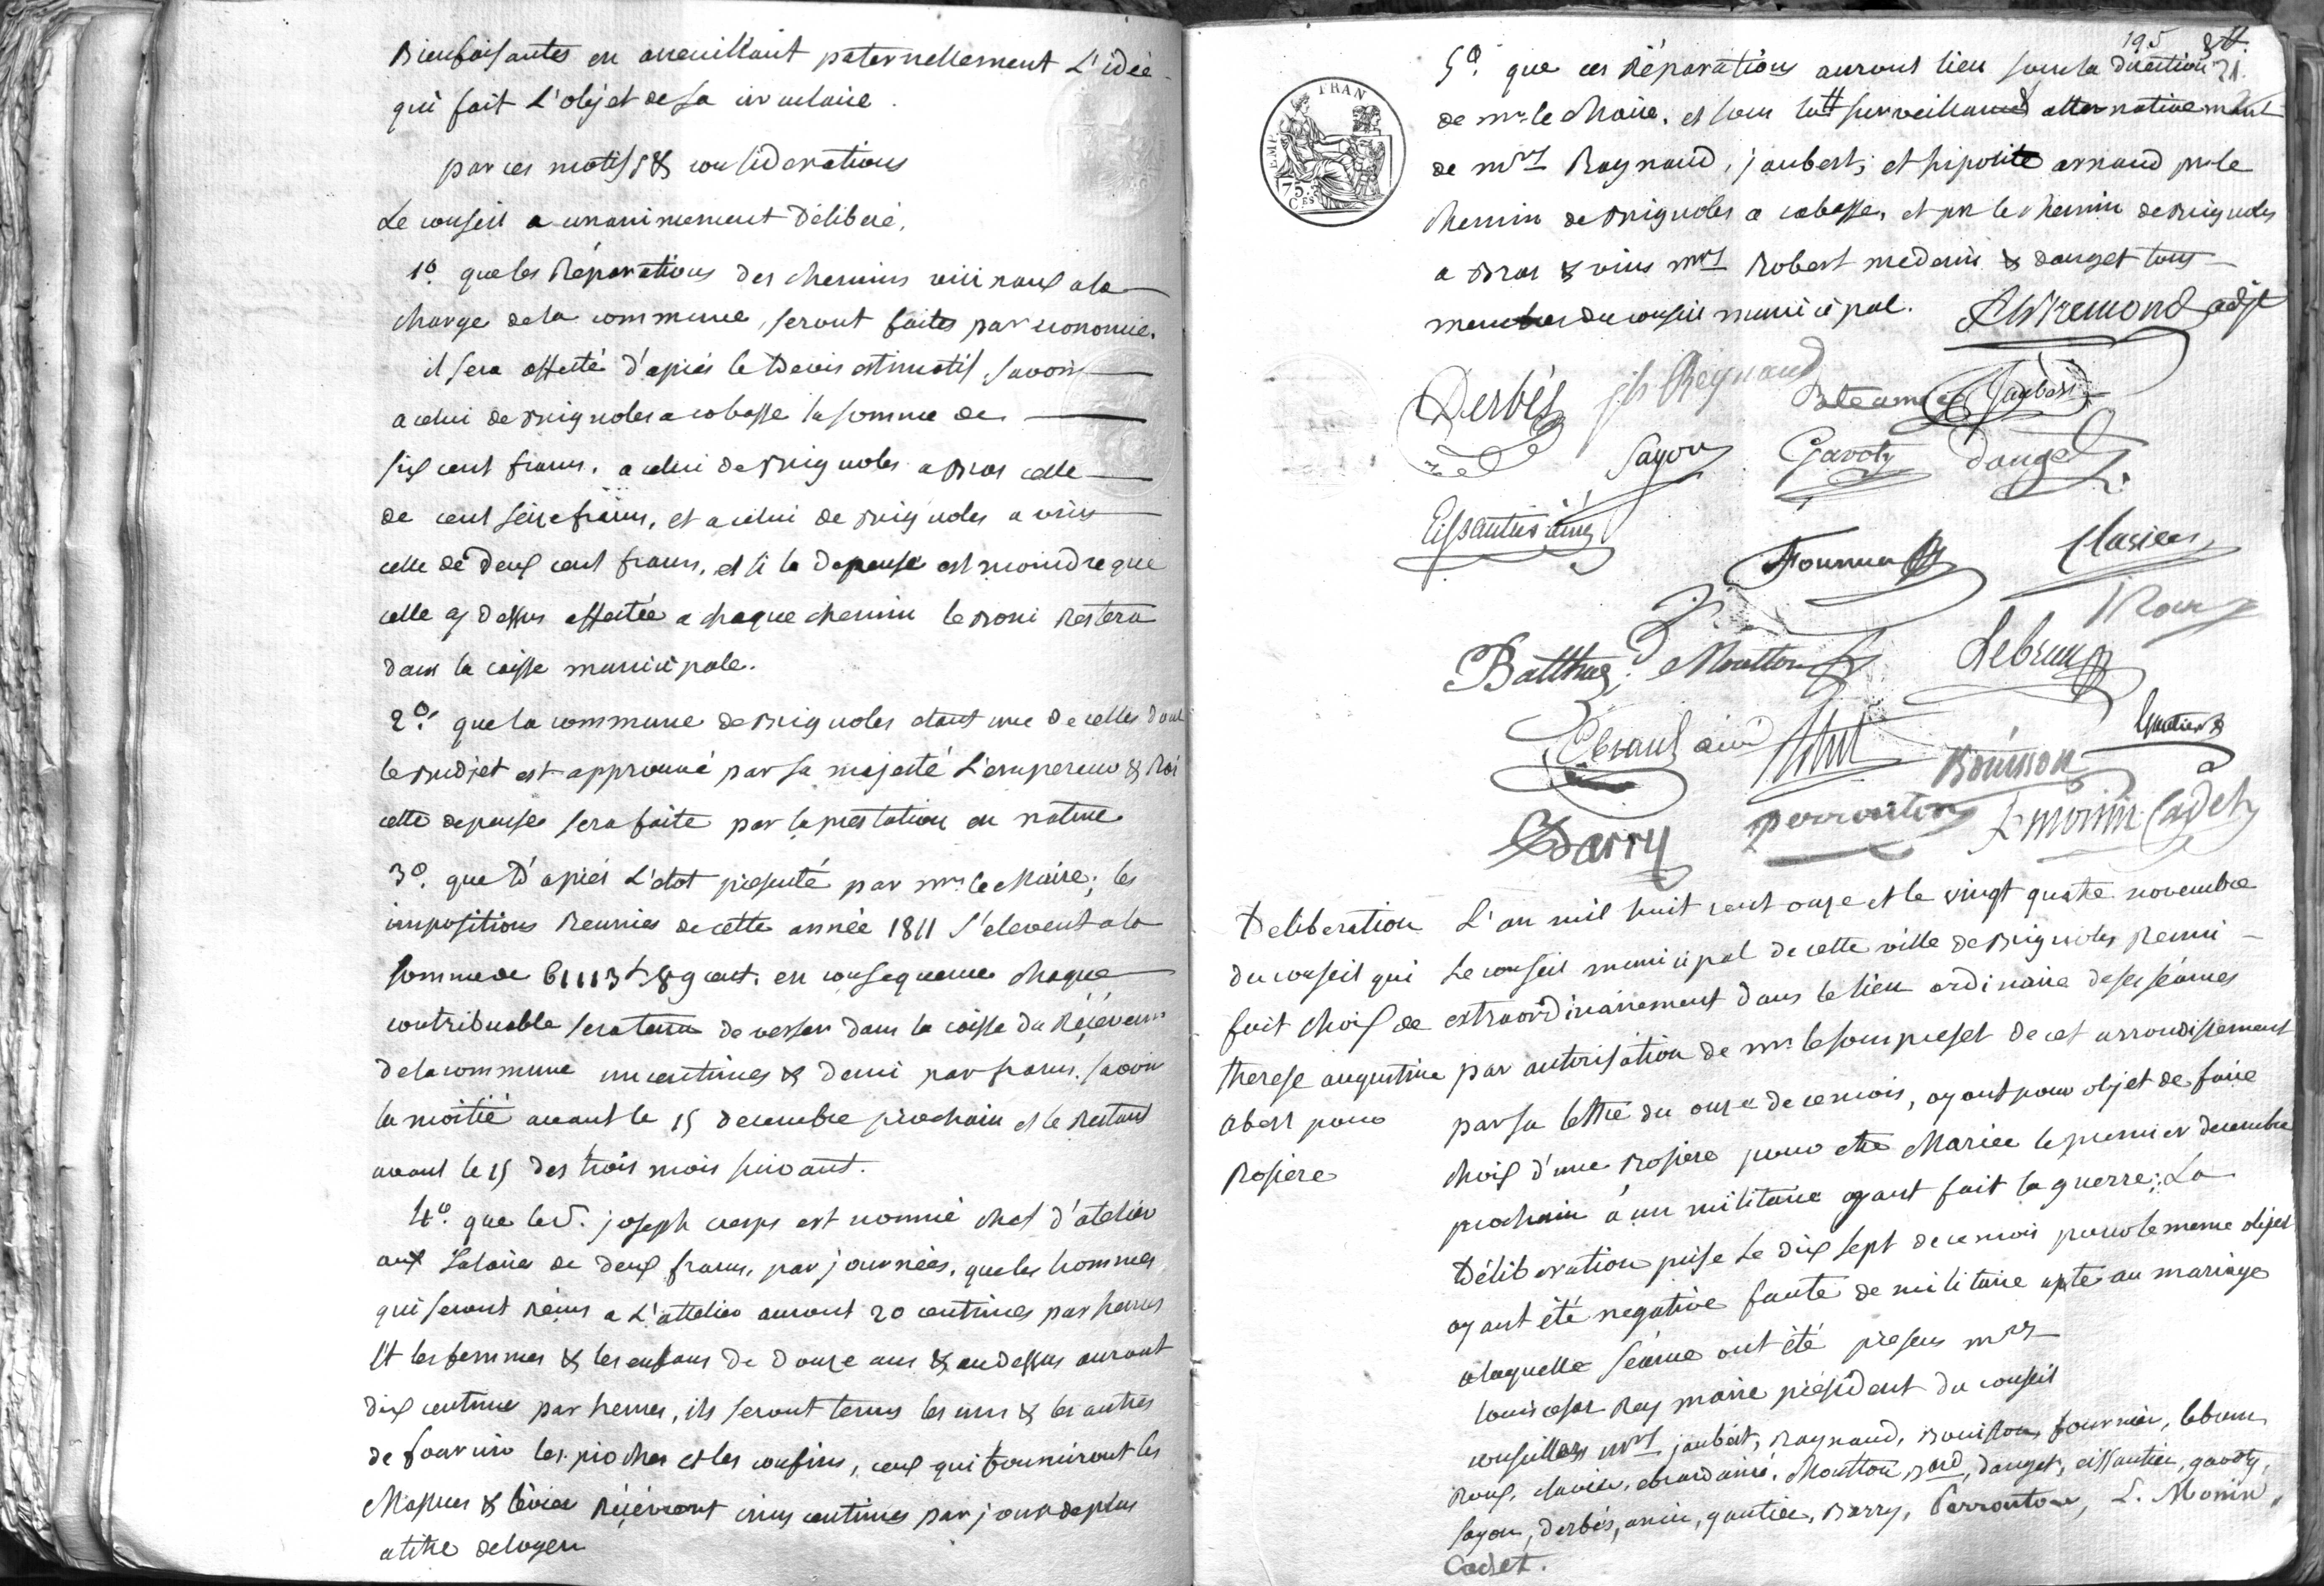 Bienfaisantes en acceuillant paternellement L'idée
qui fait L'objet de sa circulaire.
par ces motifs & considerations
Le conseil a unanimement Déliberé,
1º. que les Réparations des chemins vicinaux a la
charge de la commune, seront faites par economie.
il sera affecté d'apiés le Devis estimatif, savoir
a celui de Brignoles a cabasse la somme de
six cent francs. a celui de Brignoles a Bras celle
de cent seize francs, et a celui de Brignoles a vins
celle de deux cent francs, et si la depense est moindre que
celle cy dessus affectée a chaque chemin le Boni Restera
dans la caisse municipale.
2º. que la commune de Brignoles etant une de celles dont
le Budjet est approuvé par sa majesté L'empereur & Roi
cette depense sera faite par la prestation en nature
3º. que D'apiés L'etat presenté par mr. le Maire, les
impositions Reunies de cette année 1811 s'elevent a la
somme de 61113 89 cent. en consequence chaque
contribuable sera tenu de verser dans la caisse du Réceveur
de la commune un centimes & demi par franc. savoir
la moitié avant le 15 decembre prochain et le Restant
avant le 15 des trois mois suivant.
4º. que le S. joseph cresps est nommé chef d'atelier
aux Salaire de deux francs, par journées, que les hommes
qui seront reçus a L'attelier auront 20 centimes par heures
Et les femmes & les enfans De Douze ans & au dessus auront
dix centimes par heures, ils seront tenus les uns & les autres
de fournir les pioches et les coufins, ceux qui fourniront les
Masses & leviers Réçevront cinq centimes par jour de plus
a titre de loyer
195
21.
5º. que ces Réparations auront lieu sous la Direction
de mr. le Maire, et sous la surveillance alternativemant
de mrs Raynaud, jaubert, et hipolite arnaud pr. le
chemin de Brignoles a cabasse, et pr le chemin de Brignoles
a Bras & vins mrs Robert medecin & dauget tous
membres du conseil municipal.
FRAN
TEMP
75. CES
Derbés Reynaud Jaubert
Sayou Gavoty Dauget
Eissautier ainé
Fournier Clavier
Roux
Balthas. Moutton Lebrun
Ebrard ainé
Gautier
Bouisson
Barry perrouton L. monin Cadet
Deliberation
du conseil qui
fait choix de
therese augustine
abert pour
Rosiere
L'an mil huit cent onze et le vingt quatre novembre
Le conseil municipal de cette ville de Brignoles Reuni
extraordinairement dans le lieu ordinaire de ses séances
par autorisation de mr. le souspréfet de cet arrondissement
par sa lettre du onze de ce mois, ayant pour objet de faire
choix d'une Rosiere pour etre Mariée le premier decembre
prochain á un militaire ayant fait la guerre; La
Déliberation prise Le dix sept de ce mois pour le meme objet
ayant été negative faute de militaire apte au mariage
a laquelle séance ont été presens mrs
Louis cesar Rey maire président du conseil
conseillers mrs jaubert, Raynaud, Bouisson, fournier, lebrun
Roux, clavier, ebrard ainé, Moutton, dauget, eissautier, gavoty,
sayou, derbés, gautier, Barry, Perrouton, L. Monin,
Cadet.